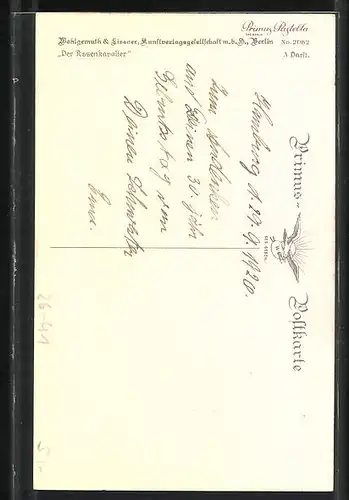 Primus-Pastella
Wohlgemuth & Lissner, Kunstverlagsgesellschaft m.b.H., Berlin No. 2062
„Der Rosenkavalier" 3 Darst.
Primus-Postkarte
Hamburg d. 29. 9. 1920.
Zum Andenken
an Deinen 30 jähr
Geburtstag von
Deiner Schwester
Erna.
26-41
5/-